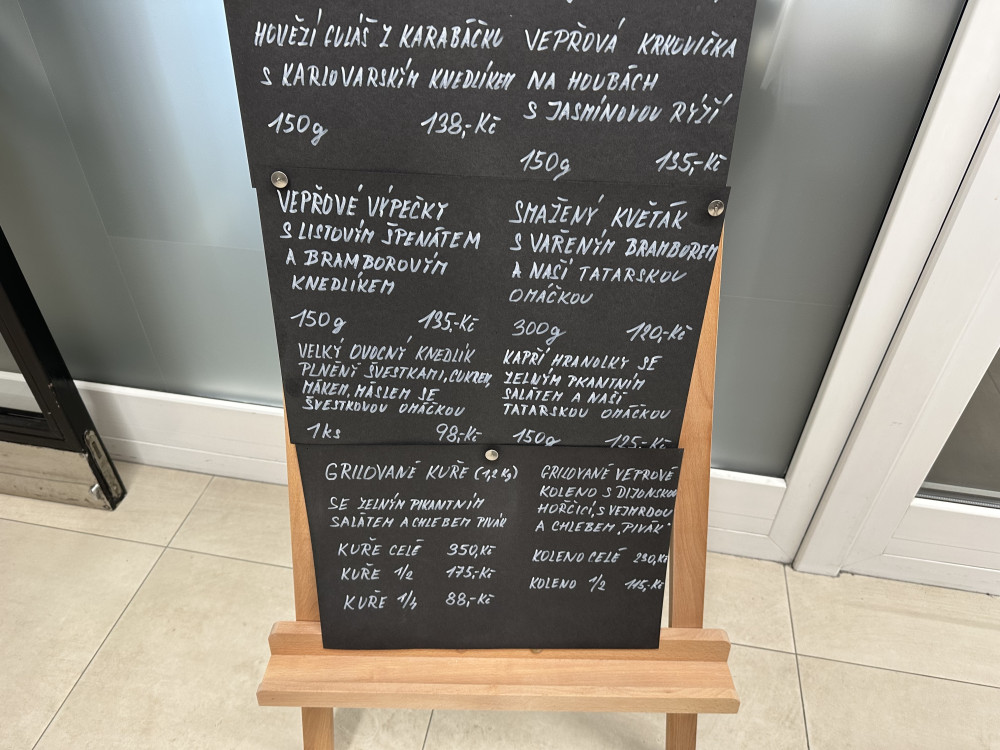 HOVĚZÍ GULÁŠ Z KARABÁČKU
S KARLOVARSKÝM KNEDLÍKEM
150g 138,-Kč
VEPŘOVÁ KRKOVIČKA
NA HOUBÁCH
S JASMÍNOVOU RÝŽÍ
150g 135,-Kč
VEPŘOVÉ VÝPEČKY
S LISTOVÝM ŠPENÁTEM
A BRAMBOROVÝM
KNEDLÍKEM
150g 135,-Kč
SMAŽENÝ KVĚTÁK
S VAŘENÝM BRAMBOREM
A NAŠÍ TATARSKOU
OMÁČKOU
300g 120,-Kč
VELKÝ OVOCNÝ KNEDLÍK
PLNĚNÝ ŠVESTKAMI, CUKREM,
MÁKEM, MÁSLEM SE
ŠVESTKOVOU OMÁČKOU
1ks 98,-Kč
KAPŘÍ HRANOLKY SE
ZELNÝM PIKANTNÍM
SALÁTEM A NAŠÍ
TATARSKOU OMÁČKOU
150g 125,-Kč
GRILOVANÉ KUŘE (1,2 Kg)
SE ZELNÝM PIKANTNÍM
SALÁTEM A CHLEBEM PIVÁK
KUŘE CELÉ 350,Kč
KUŘE 1/2 175,-Kč
KUŘE 1/4 88,-Kč
GRILOVANÉ VEPROVÉ
KOLENO S DIJONSKOU
HOŘČICÍ, S VEJMRDOU
A CHLEBEM „PIVÁK"
KOLENO CELÉ 230,Kč
KOLENO 1/2 115,-Kč